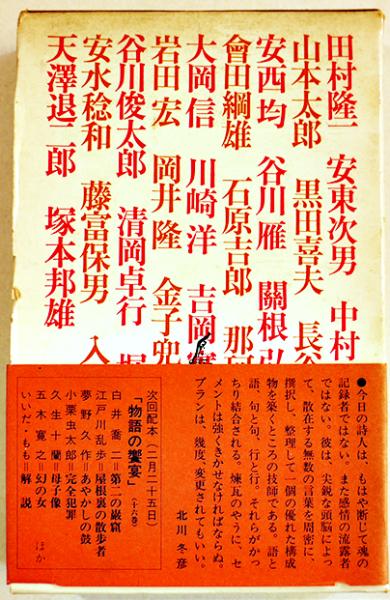 田村隆一 安東次男 中村
山本太郎 黒田喜夫 長谷
安西均 谷川雁 關根弘
會田綱雄 石原吉郎 那珂
大岡信 川崎洋 吉岡實
岩田宏 岡井隆 金子兜
谷川俊太郎 清岡卓行 堀
安水稔和 藤富保男 入
天澤退二郎 塚本邦雄
●今日の詩人は、もはや断じて魂の
記録者ではない。また感情の流露者
ではない。彼は、尖鋭な頭脳によっ
て、散在する無数の言葉を周密に、
撰択し、整理して一個の優れた構成
物を築くところの技師である。語と
語、句と句、行と行。それらがかっ
ちり結合される。煉瓦のやうに。セ
メントは強くきかせなければならぬ。
プランは、幾度、変更されてもいい。
北川冬彦
次回配本(二月二十五日)
「物語の饗宴」(十六巻)
白井喬二=第二の巌窟
江戸川乱歩=屋根裏の散歩者
夢野久作=あやかしの鼓
小栗虫太郎=完全犯罪
久生十蘭=母子像
五木寛之=幻の女
ほか
いいだ・もも=解説